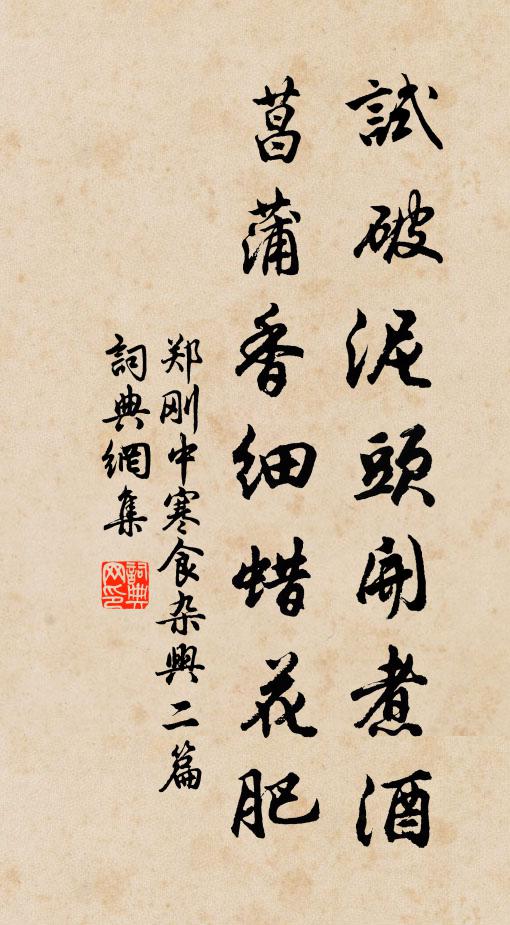 試破泥頭開煮酒
菖蒲香细蜡花肥
郑刚中寒食杂興二篇
詞典網集
詞典網印